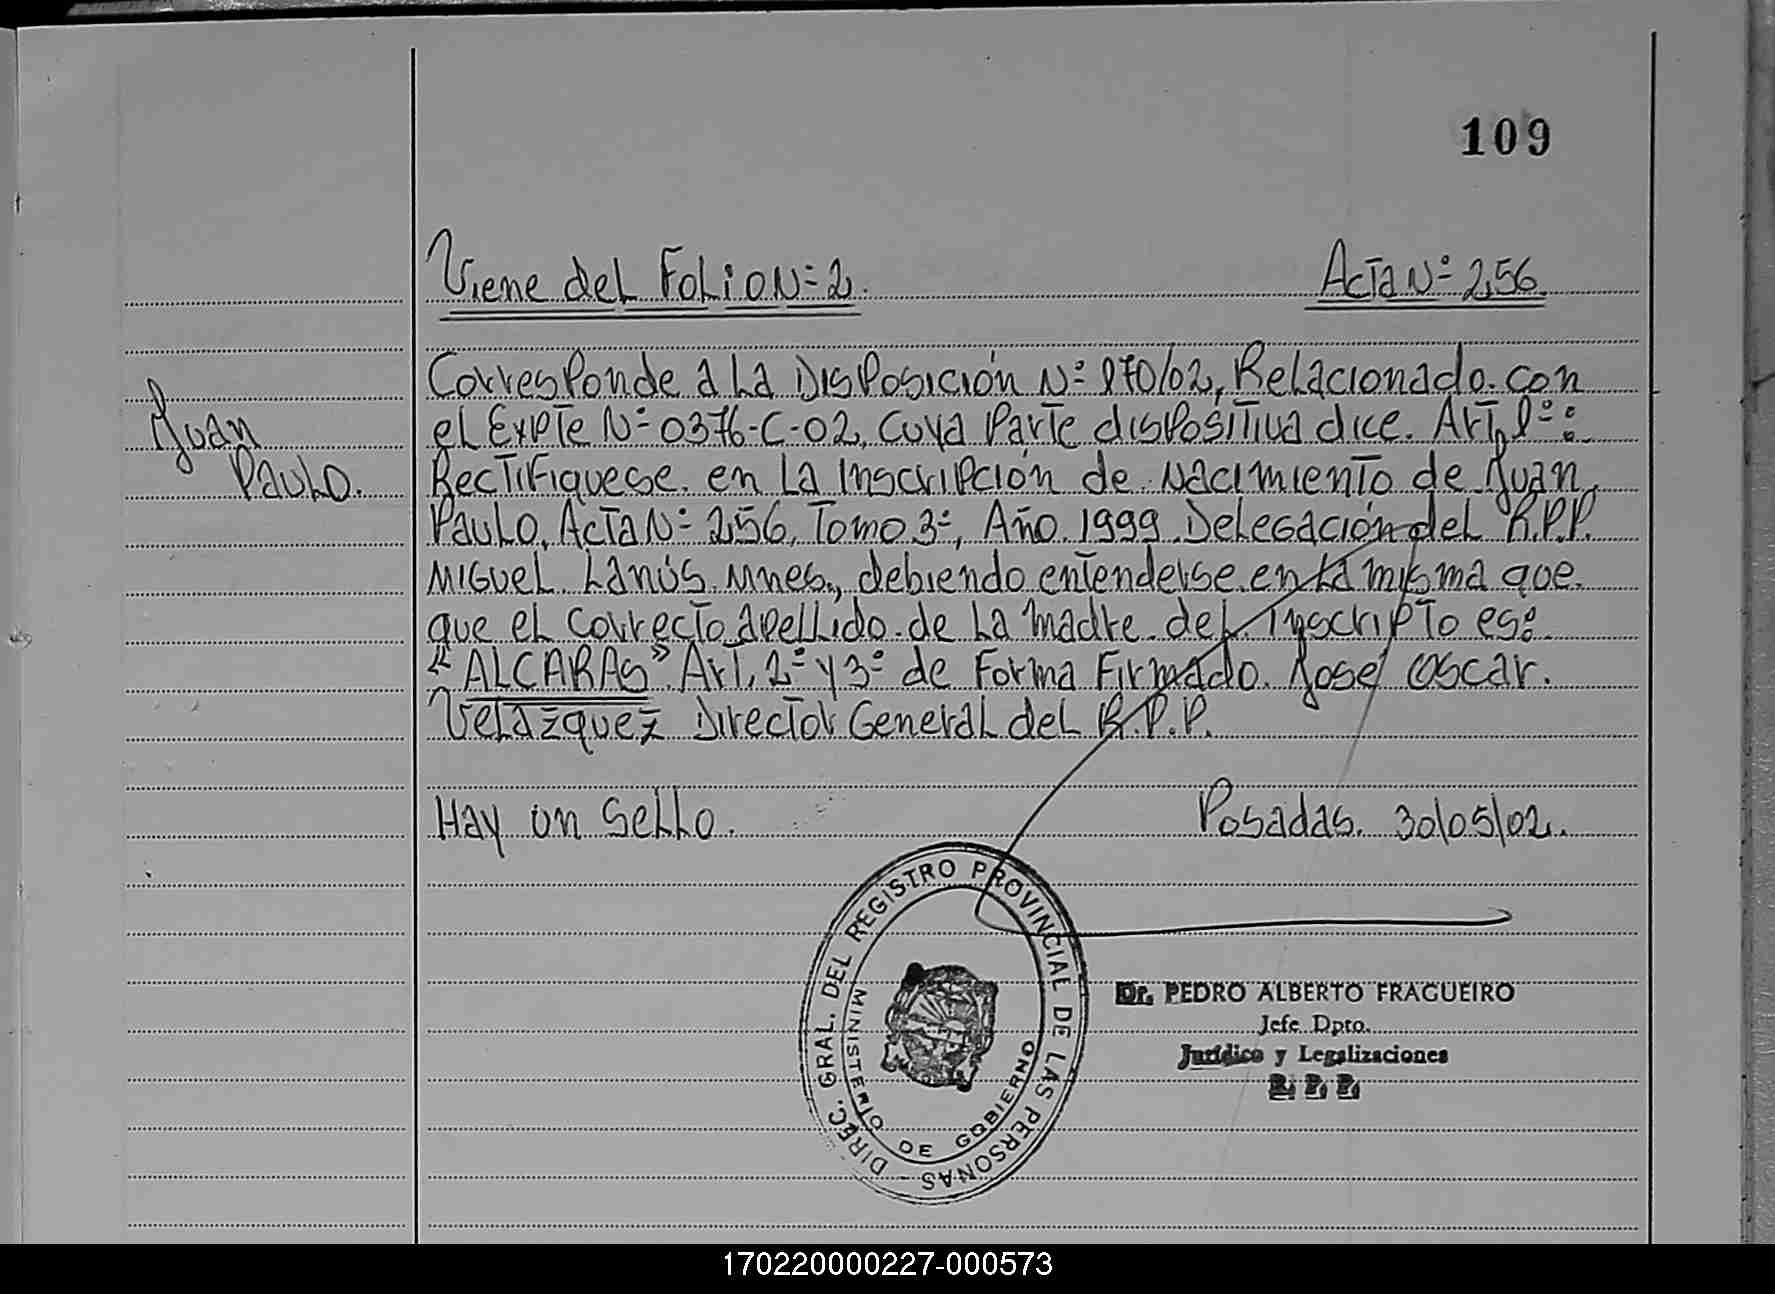 109
Viene del Folio N=2. Acta Nº 256.
Corresponde a la Disposición Nº 170/02, Relacionado con
Juan
el Expte Nº 0376-C-02, cuya Parte dispositiva dice. Art. 1º:
Paulo.
Rectifiquese en la inscripción de Nacimiento de Juan
Paulo, Acta Nº 256, Tomo 3º, Año 1999. Delegación del R.P.P.
Miguel Lanús. Mnes., debiendo entenderse en la misma que
que el correcto apellido de la madre del inscripto es:
"ALCARAS" Art. 2º y 3º de Forma Firmado. José Oscar.
Velazquez Director General del R.P.P.
Hay un sello. Posadas. 30/05/02.
DIREC. GRAL. DEL REGISTRO PROVINCIAL DE LAS PERSONAS
MINISTERIO DE GOBIERNO
Dr. PEDRO ALBERTO FRAGUEIRO
Jefe Dpto.
Jurídico y Legalizaciones
R. P. P.
170220000227-000573